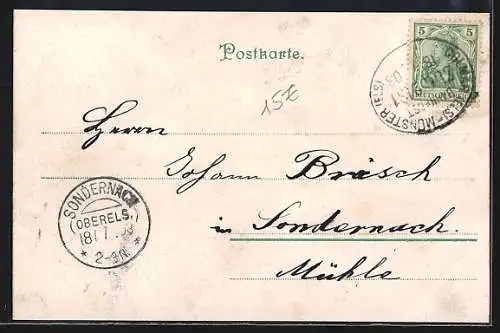 Postkarte.
5 5
DEUTSCHES REICH
MÜNSTER (ELS)
15€
Herrn
Johann Bräsch
in Sondernach.
Mühle
SONDERNACH
(OBERELS.)
2-3N.